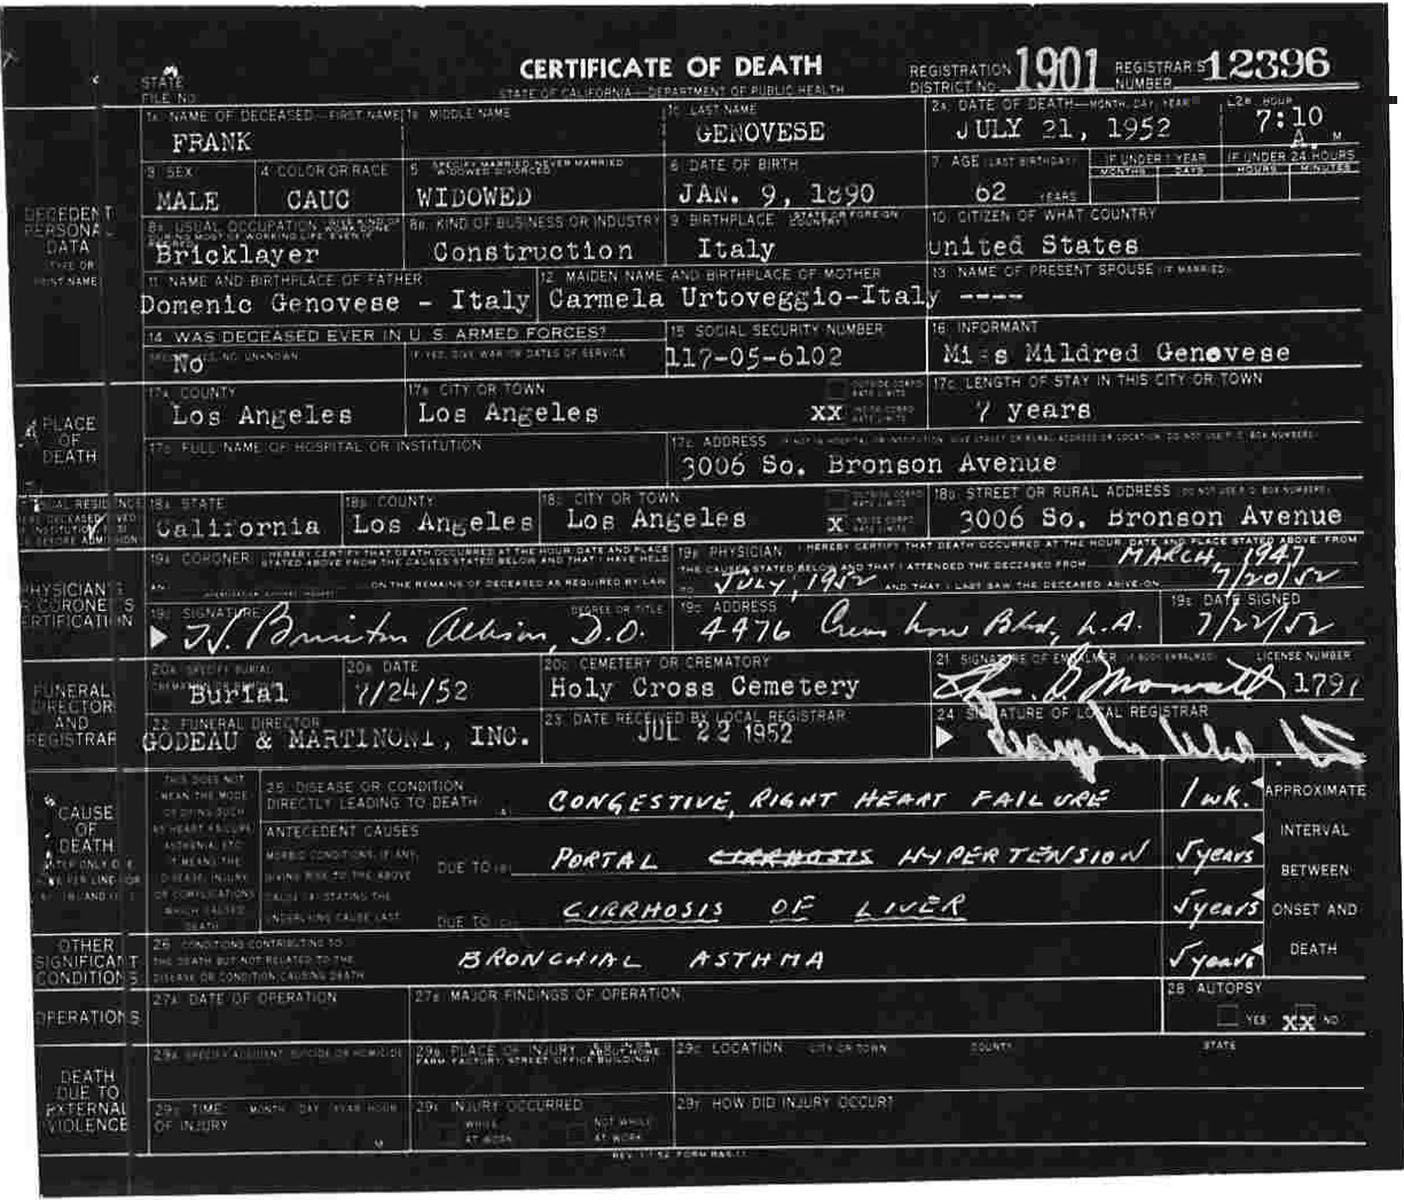 CERTIFICATE OF DEATH
STATE OF CALIFORNIA—DEPARTMENT OF PUBLIC HEALTH
STATE FILE NO.
REGISTRATION DISTRICT NO. 1901
REGISTRAR'S NUMBER 12396
DECEDENT PERSONAL DATA
TYPE OR PRINT NAME
1A. NAME OF DECEASED—FIRST NAME
FRANK
1B. MIDDLE NAME
1C. LAST NAME
GENOVESE
2A. DATE OF DEATH—MONTH, DAY, YEAR
JULY 21, 1952
2B. HOUR
7:10 A. M
3. SEX
MALE
4. COLOR OR RACE
CAUC
5. SPECIFY MARRIED NEVER MARRIED WIDOWED DIVORCED
WIDOWED
6. DATE OF BIRTH
JAN. 9, 1890
7. AGE (LAST BIRTHDAY)
62 YEARS
IF UNDER 1 YEAR
MONTHS DAYS
IF UNDER 24 HOURS
HOURS MINUTES
8A. USUAL OCCUPATION
Bricklayer
8B. KIND OF BUSINESS OR INDUSTRY
Construction
9. BIRTHPLACE (STATE OR FOREIGN COUNTRY)
Italy
10. CITIZEN OF WHAT COUNTRY
United States
11. NAME AND BIRTHPLACE OF FATHER
Domenic Genovese - Italy
12. MAIDEN NAME AND BIRTHPLACE OF MOTHER
Carmela Urtoveggio-Italy
13. NAME OF PRESENT SPOUSE (IF MARRIED)
----
14. WAS DECEASED EVER IN U S ARMED FORCES?
No
IF YES, GIVE WAR OR DATES OF SERVICE
15. SOCIAL SECURITY NUMBER
117-05-6102
16. INFORMANT
Miss Mildred Genovese
PLACE OF DEATH
17A. COUNTY
Los Angeles
17B. CITY OR TOWN
Los Angeles
XX
17C. LENGTH OF STAY IN THIS CITY OR TOWN
7 years
17D. FULL NAME OF HOSPITAL OR INSTITUTION
17E. ADDRESS
3006 So. Bronson Avenue
18A. STATE
California
18B. COUNTY
Los Angeles
18C. CITY OR TOWN
Los Angeles
X
18D. STREET OR RURAL ADDRESS
3006 So. Bronson Avenue
PHYSICIAN'S OR CORONER'S CERTIFICATION
19A. CORONER: I HEREBY CERTIFY THAT DEATH OCCURRED AT THE HOUR DATE AND PLACE
STATED ABOVE FROM THE CAUSES STATED BELOW AND THAT I HAVE HELD
AN ON THE REMAINS OF DECEASED AS REQUIRED BY LAW
19B. PHYSICIAN: I HEREBY CERTIFY THAT DEATH OCCURRED AT THE HOUR DATE AND PLACE STATED ABOVE FROM
THE CAUSES STATED BELOW AND THAT I ATTENDED THE DECEASED FROM MARCH, 1947
TO JULY, 1952 AND THAT I LAST SAW THE DECEASED ALIVE ON 7/20/52
19C. SIGNATURE DEGREE OR TITLE
D.O.
19D. ADDRESS
4476 Crenshaw Blvd, L.A.
19E. DATE SIGNED
7/22/52
FUNERAL DIRECTOR AND REGISTRAR
20A. SPECIFY BURIAL
Burial
20B. DATE
7/24/52
20C. CEMETERY OR CREMATORY
Holy Cross Cemetery
21. SIGNATURE OF EMBALMER LICENSE NUMBER
22. FUNERAL DIRECTOR
GODEAU & MARTINONI, INC.
23. DATE RECEIVED BY LOCAL REGISTRAR
JUL 22 1952
24. SIGNATURE OF LOCAL REGISTRAR
CAUSE OF DEATH
25. DISEASE OR CONDITION
DIRECTLY LEADING TO DEATH (A)
CONGESTIVE, RIGHT HEART FAILURE
1 wk.
ANTECEDENT CAUSES
DUE TO (B)
PORTAL CIRRHOSIS HYPERTENSION
5 years
DUE TO (C)
CIRRHOSIS OF LIVER
5 years
APPROXIMATE INTERVAL BETWEEN ONSET AND DEATH
OTHER SIGNIFICANT CONDITIONS
26. CONDITIONS CONTRIBUTING TO
THE DEATH BUT NOT RELATED TO THE
DISEASE OR CONDITION CAUSING DEATH
BRONCHIAL ASTHMA
5 years
OPERATIONS
27A. DATE OF OPERATION
27B. MAJOR FINDINGS OF OPERATION
28. AUTOPSY
YES XX NO
DEATH DUE TO EXTERNAL VIOLENCE
29A. SPECIFY ACCIDENT SUICIDE OR HOMICIDE
29B. PLACE OF INJURY
29C. LOCATION CITY OR TOWN COUNTY STATE
29D. TIME MONTH DAY YEAR HOUR
OF INJURY
M
29E. INJURY OCCURRED
WHILE AT WORK
NOT WHILE AT WORK
29F. HOW DID INJURY OCCUR?